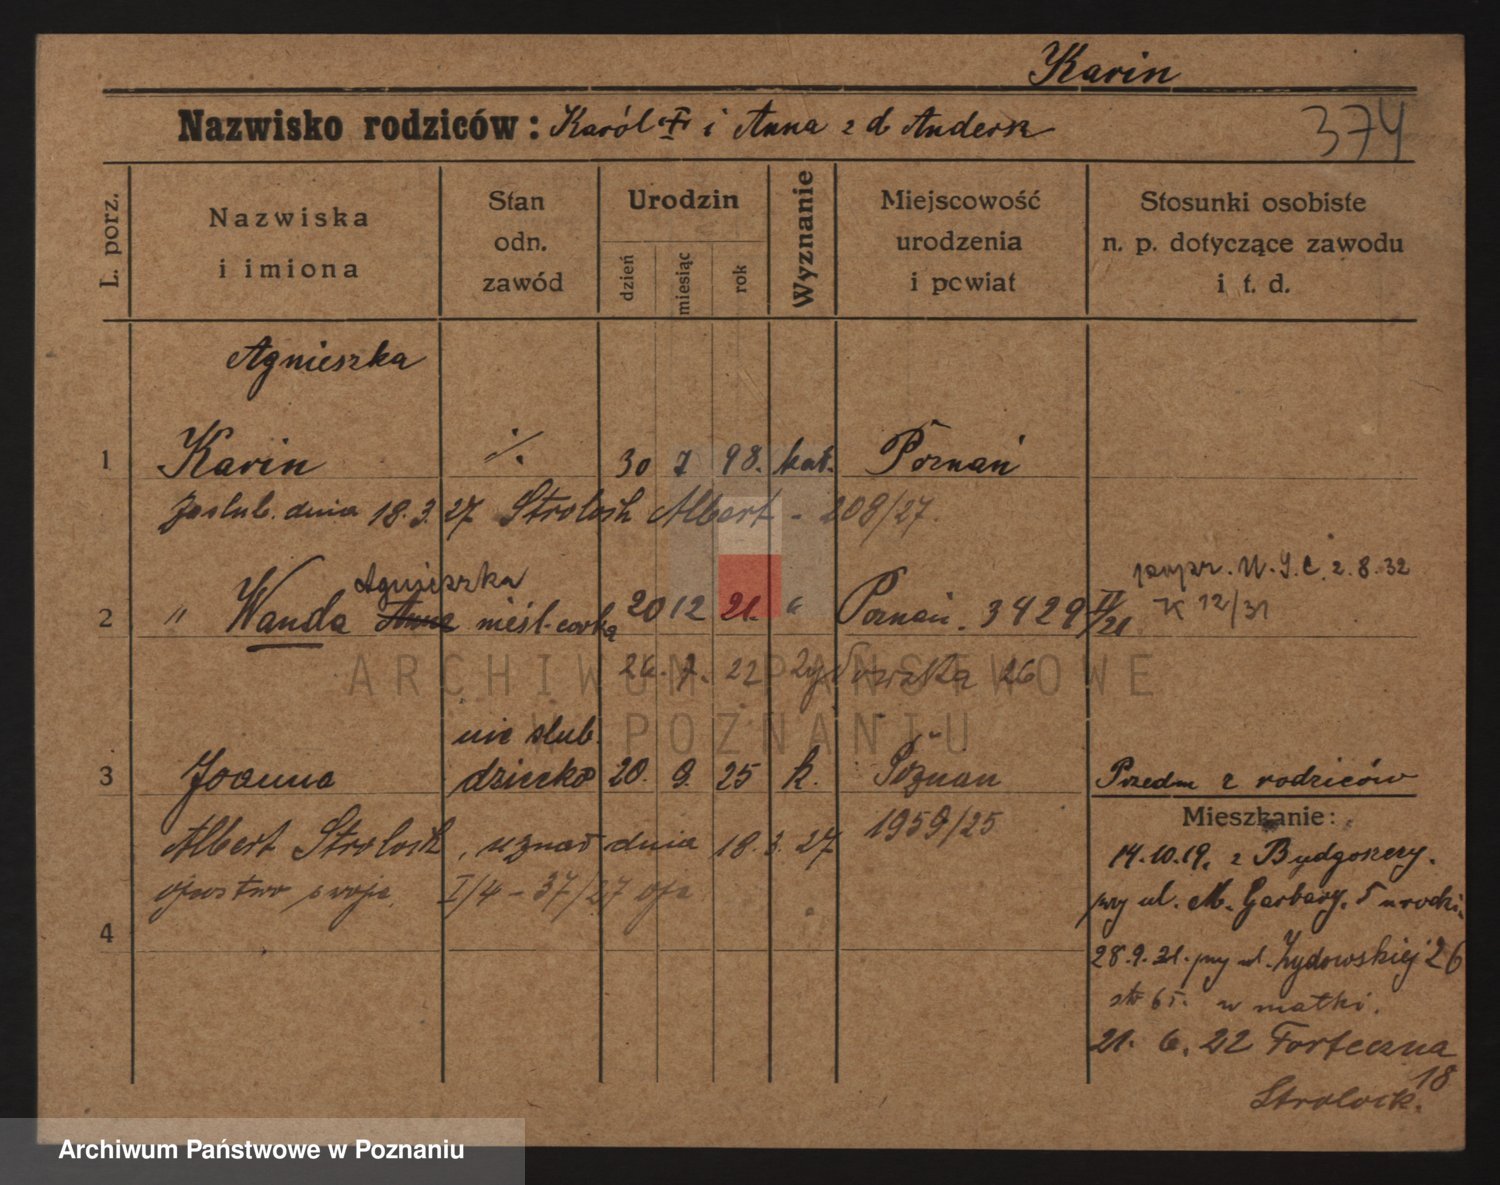 Karin
Nazwisko rodziców: Karól i Anna z d Andersz
374
L. porz.
Nazwiska i imiona
Stan odn. zawód
Urodzin
dzień
miesiąc
rok
Wyznanie
Miejscowość urodzenia i powiat
Stosunki osobiste n. p. dotyczące zawodu i t. d.
Agnieszka
1 Karin ./. 30 7 98. kat. Poznań
zaslub. dnia 18. 3. 27 Strolosk Albert - 208/27.
Agnieszka
popr. U.S.C. 2. 8. 32
2 " Wanda Anna nieśl. corka 20 12 21. " Poznań. 3429 IV/21 K 12/31
26. 7. 22 Żydowska 26
nie slub.
3 Joanna dziecko 20. 9. 25 k. Poznan
Przedm z rodziców
1959/25
Mieszkanie:
Albert Strolosk, uznał dnia 18. 3. 27
14.10.19. z Bydgoszczy.
ojcostwo swoje. I/4 - 37/27
przy ul. M. Garbary. 5 u rodzi.
4
28.9.21. przy ul. Żydowskiej 26
u matki.
21. 6. 22 Forteczna
18
Strolock.
ARCHIWUM PAŃSTWOWE
W POZNANIU
Archiwum Państwowe w Poznaniu